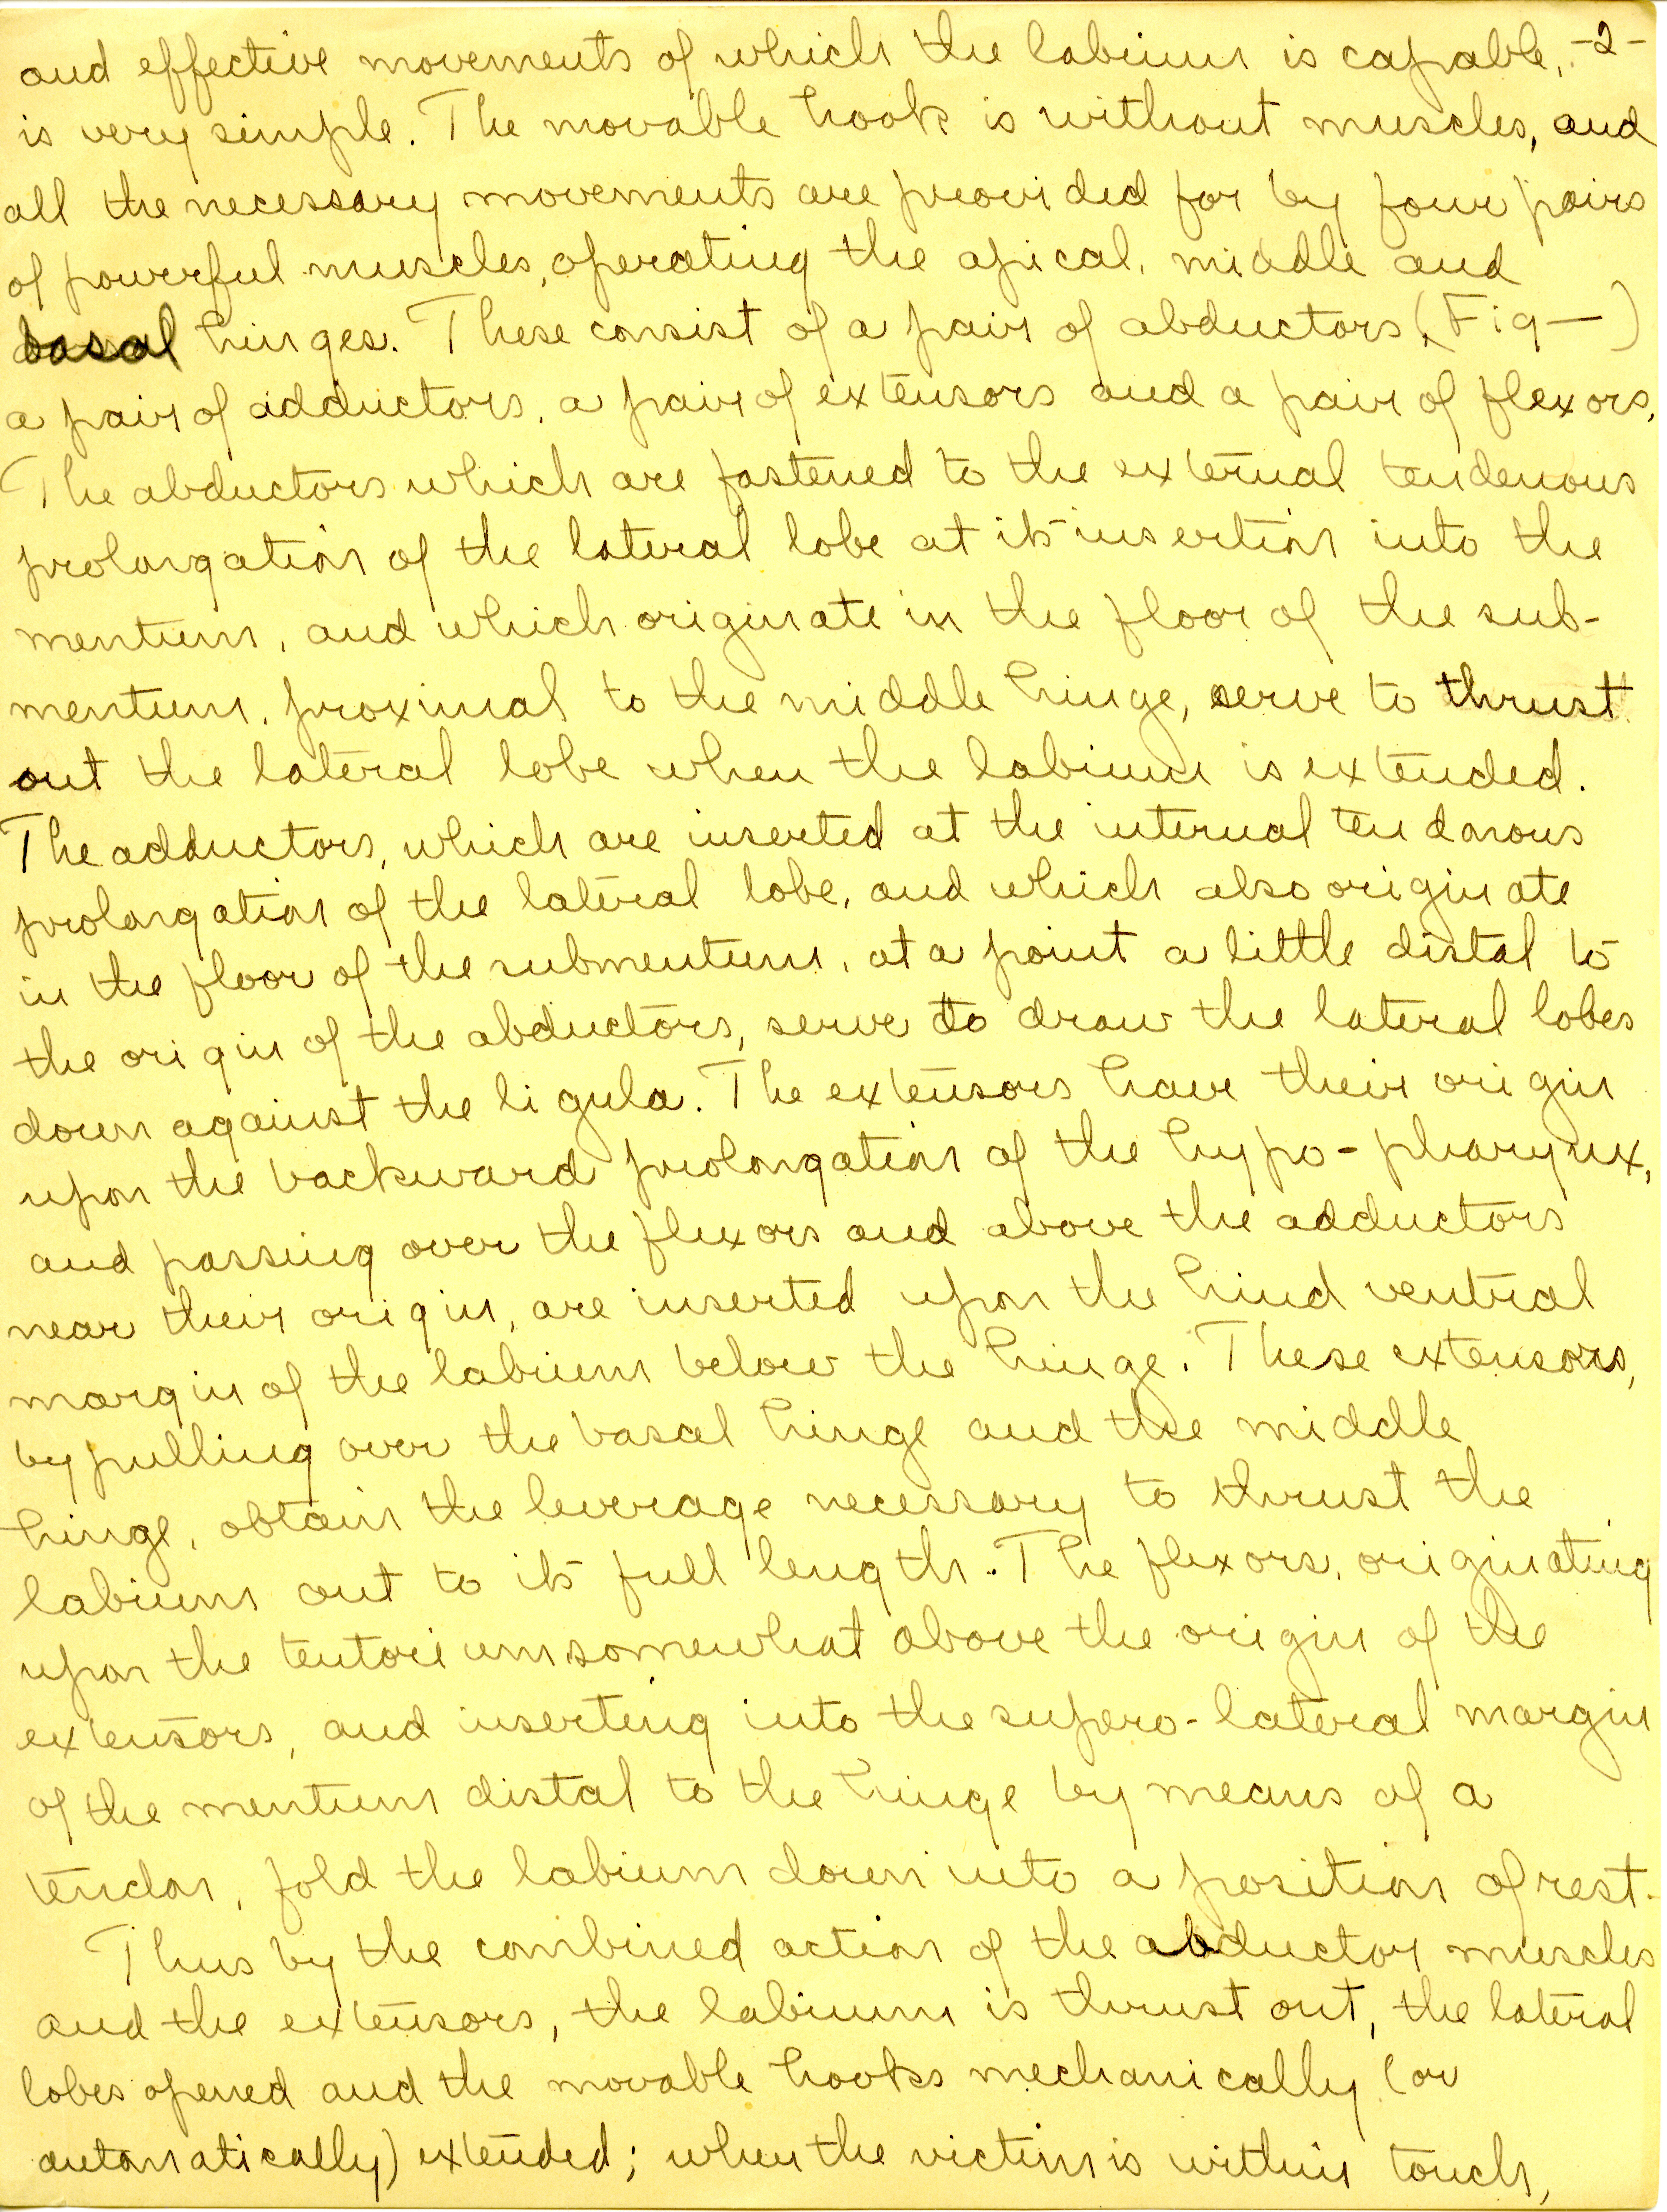 and effective movements of which the labium is capable, -2-
is very simple. The movable hook is without muscles, and
all the necessary movements are provided for by four pairs
of powerful muscles, operating the apical, middle and
basal hinges. These consist of a pair of abductors, (Fig — )
a pair of adductors, a pair of extensors and a pair of flexors.
The abductors which are fastened to the external tendenous
prolongation of the lateral lobe at its insertion into the
mentum, and which originate in the floor of the sub-
mentum, proximal to the middle hinge, serve to thrust
out the lateral lobe when the labium is extended.
The adductors, which are inserted at the internal tendonous
prolongation of the lateral lobe, and which also originate
in the floor of the submentum, at a point a little distal to
the origin of the abductors, serve to draw the lateral lobes
down against the ligula. The extensors have their origin
upon the backward prolongation of the hypo-pharynx,
and passing over the flexors and above the adductors
near their origin, are inserted upon the hind ventral
margin of the labium below the hinge. These extensors,
by pulling over the basal hinge and the middle
hinge, obtain the leverage necessary to thrust the
labium out to its full length. The flexors, originating
upon the tentorium somewhat above the origin of the
extensors, and inserting into the supero-lateral margin
of the mentum distal to the hinge by means of a
tendon, fold the labium down into a position of rest.
Thus by the combined action of the abductor muscles
and the extensors, the labium is thrust out, the lateral
lobes opened and the movable hooks mechanically (or
automatically) extended; when the victim is within touch,